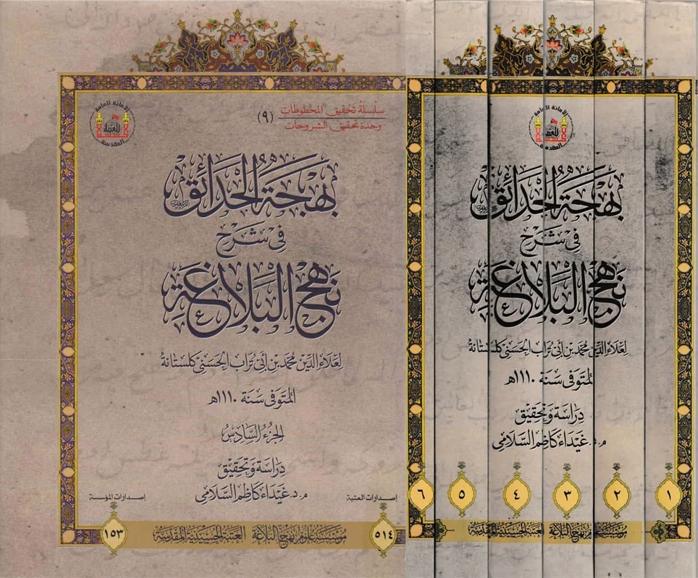 سلسلة تحقيق المخطوطات
وحدة تحقيق الشروحات
(٩)
بهجة الحدائق
في شرح
نهج البلاغة
لعلاء الدين محمد بن أبي تراب الحسني كلستانة
المتوفى سنة ١١١٠هـ
الجزء السادس
دراسة وتحقيق
م.د. غيداء كاظم السلامي
إصدارات العتبة
٥١٤
إصدارات المؤسسة
١٥٣
مؤسسة علوم نهج البلاغة
العتبة الحسينية المقدسة
بهجة الحدائق
في شرح
نهج البلاغة
لعلاء الدين محمد بن أبي تراب الحسني كلستانة
المتوفى سنة ١١١٠هـ
دراسة وتحقيق
م.د. غيداء كاظم السلامي
١ ٢ ٣ ٤ ٥ ٦
مؤسسة علوم نهج البلاغة
العتبة الحسينية المقدسة